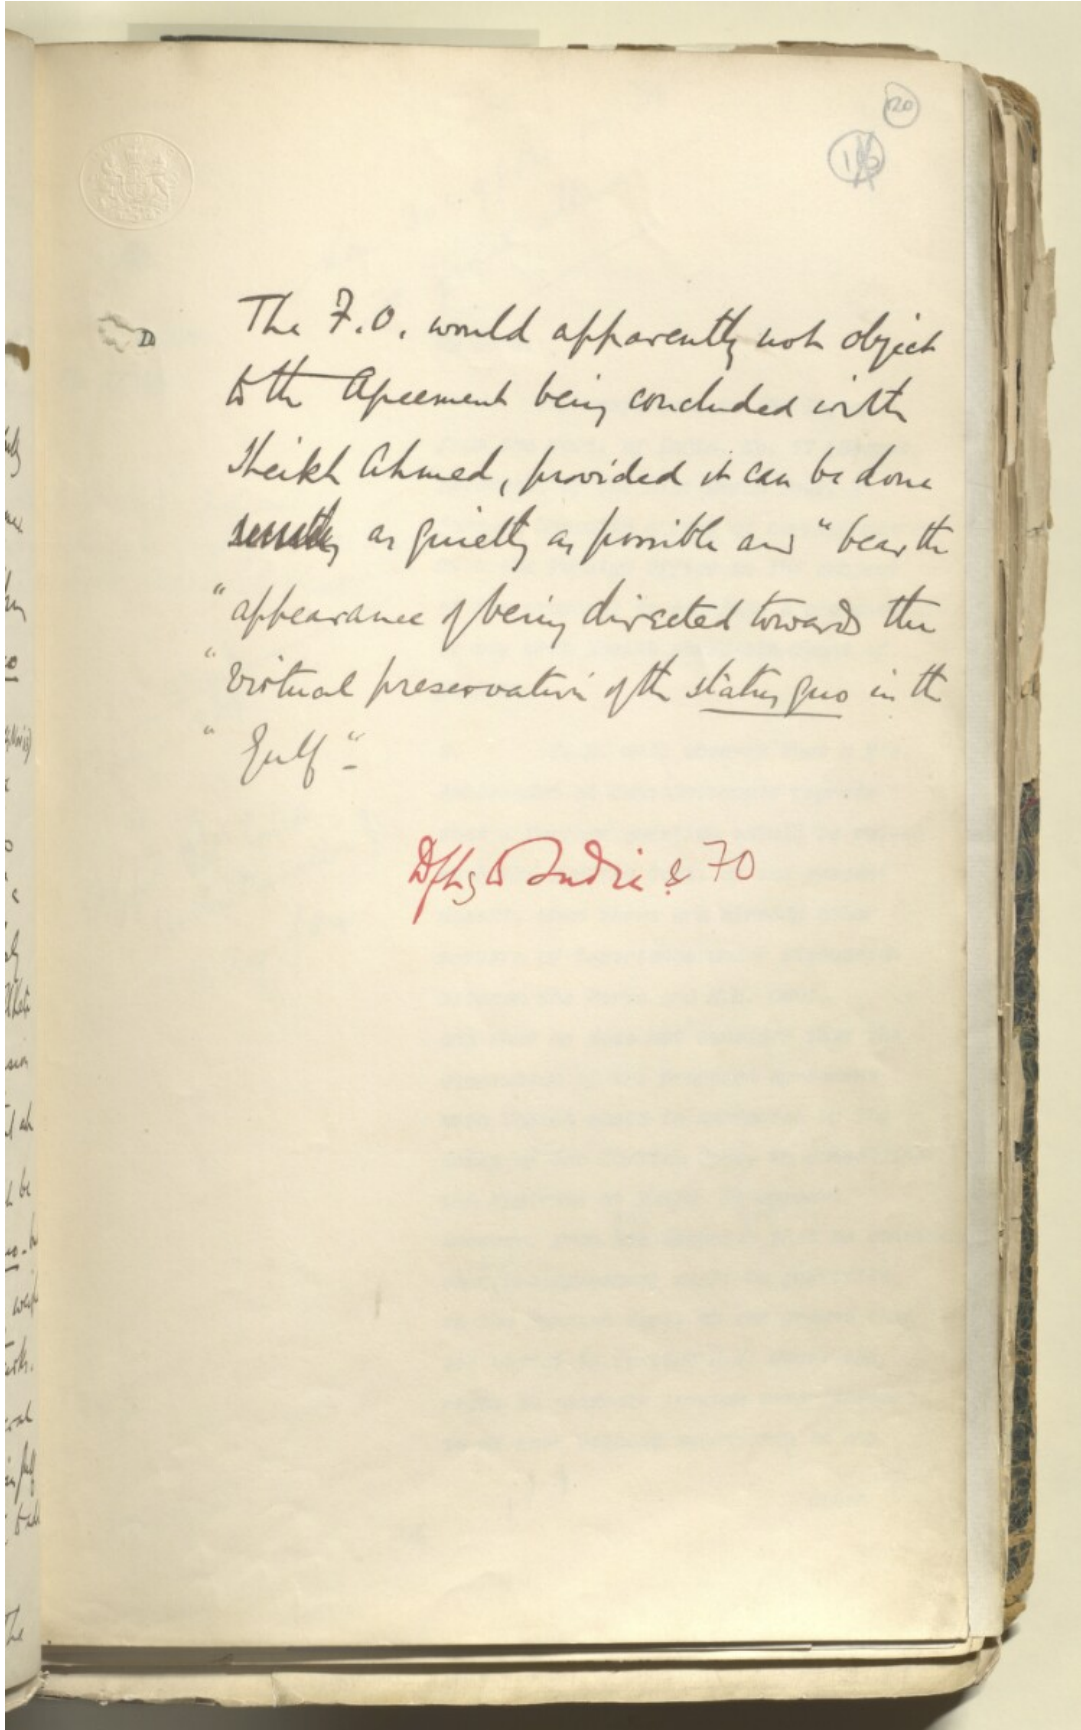 120
116
The F.O. would apparently not object
to the Agreement being concluded with
Sheikh Ahmed, provided it can be done
as quietly as possible and "bear the
"appearance of being directed towards the
"virtual preservation of the status quo in the
"Gulf"-
Dfts to India & FO